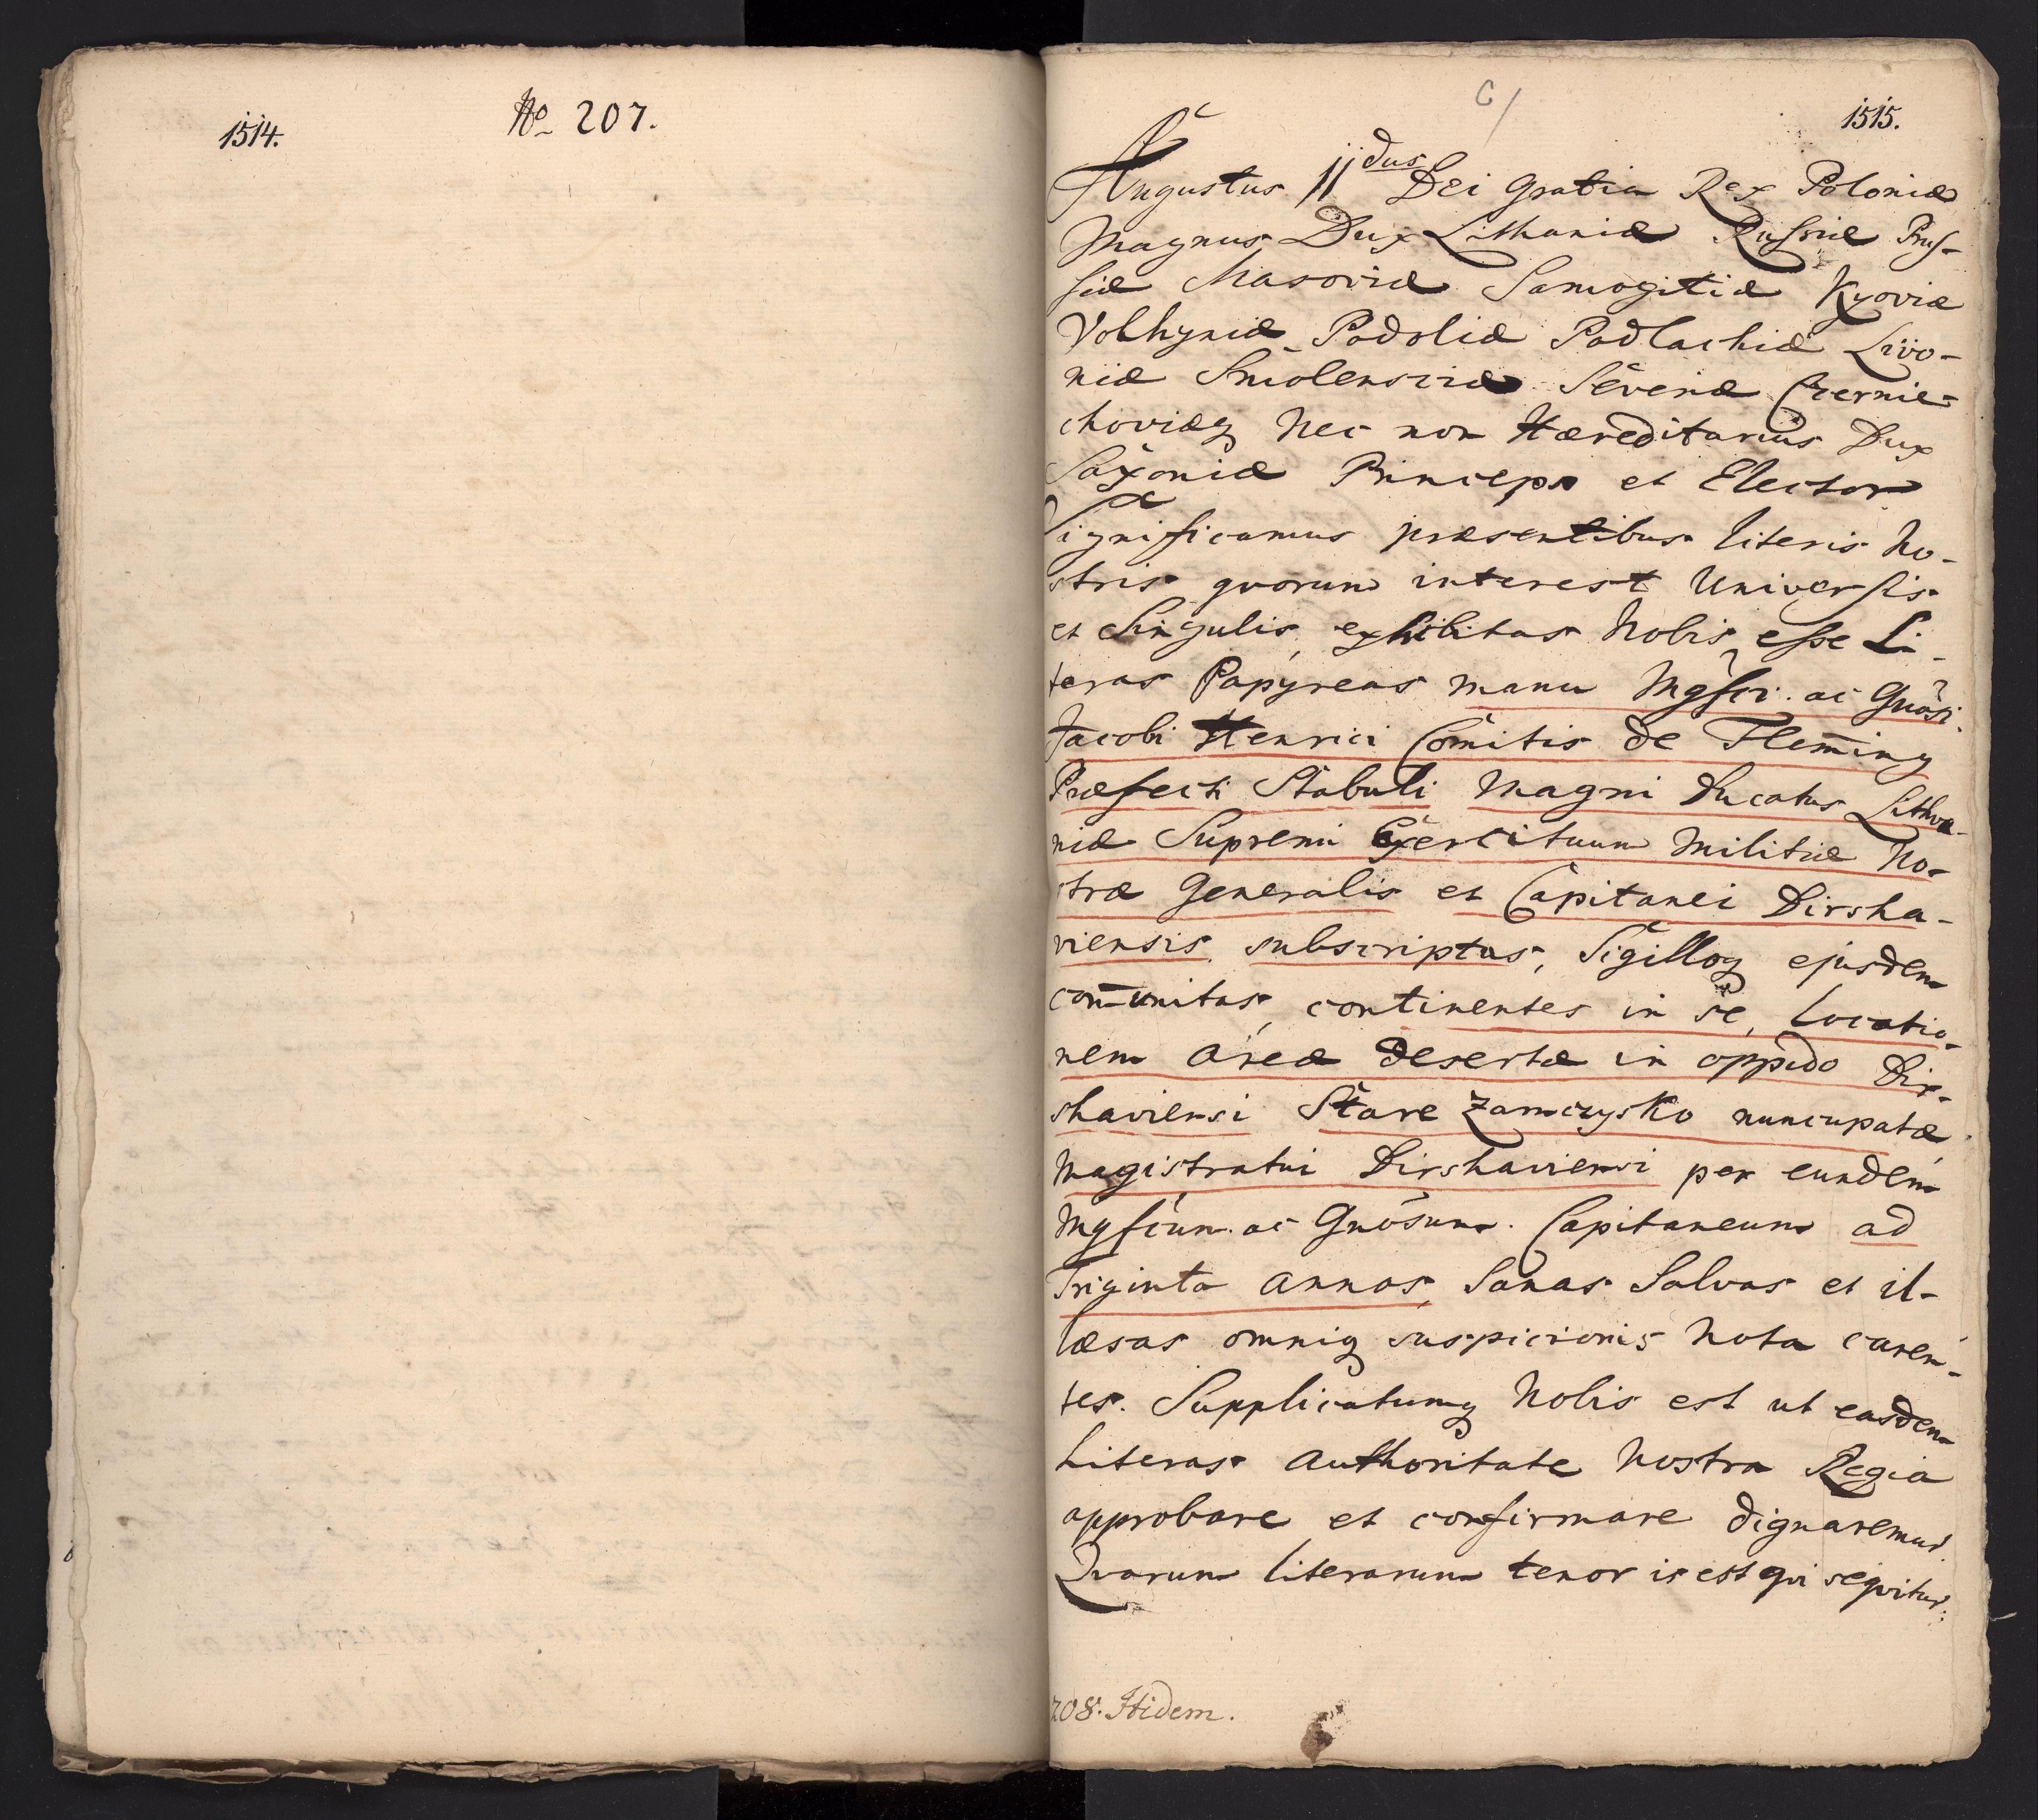 1514.
No 207.
C/
1515.
Augustus IIdus Dei Gratia Rex Poloniæ
Magnus Dux Lithaniæ Russiæ Prus-
siæ Masoviæ Samogitiæ Kyoviæ
Volhyniæ Podoliæ Podlachiæ Livo-
niæ Smolensciæ Severiæ Czernie-
choviæq nec non Hæreditarius Dux
Saxoniæ Princeps et Elector
Significamus præsentibus literis No-
stris quorum interest Universis
et Singulis, exhibitas Nobis esse Li-
teras Papyreas manu Mgfci. ac Gnosi.
Jacobi Henrici Comitis de Fleming
Præfecti Stabuli Magni Ducatus Lithva-
niæ Supremi Exercituum Militiæ No-
stræ Generalis et Capitanei Dirsha-
viensis subscriptas, Sigilloq ejusdem
comunitas, continentes in se, Locatio-
nem Areæ desertæ in oppido Dir-
shaviensi Stare Zamczysko nuncupatæ
Magistratui Dirshaviensi per eundem
Mgfcum. ac Gnosum. Capitaneum ad
Triginta annos, Sanas Salvas et il-
læsas omniq suspicionis nota caren-
tes. Supplicatumq Nobis est ut easdem
Literas Authoritate Nostra Regia
approbare et confirmare dignaremur.
Quarum literarum tenor is est qvi seqvitur:
208. Itidem.